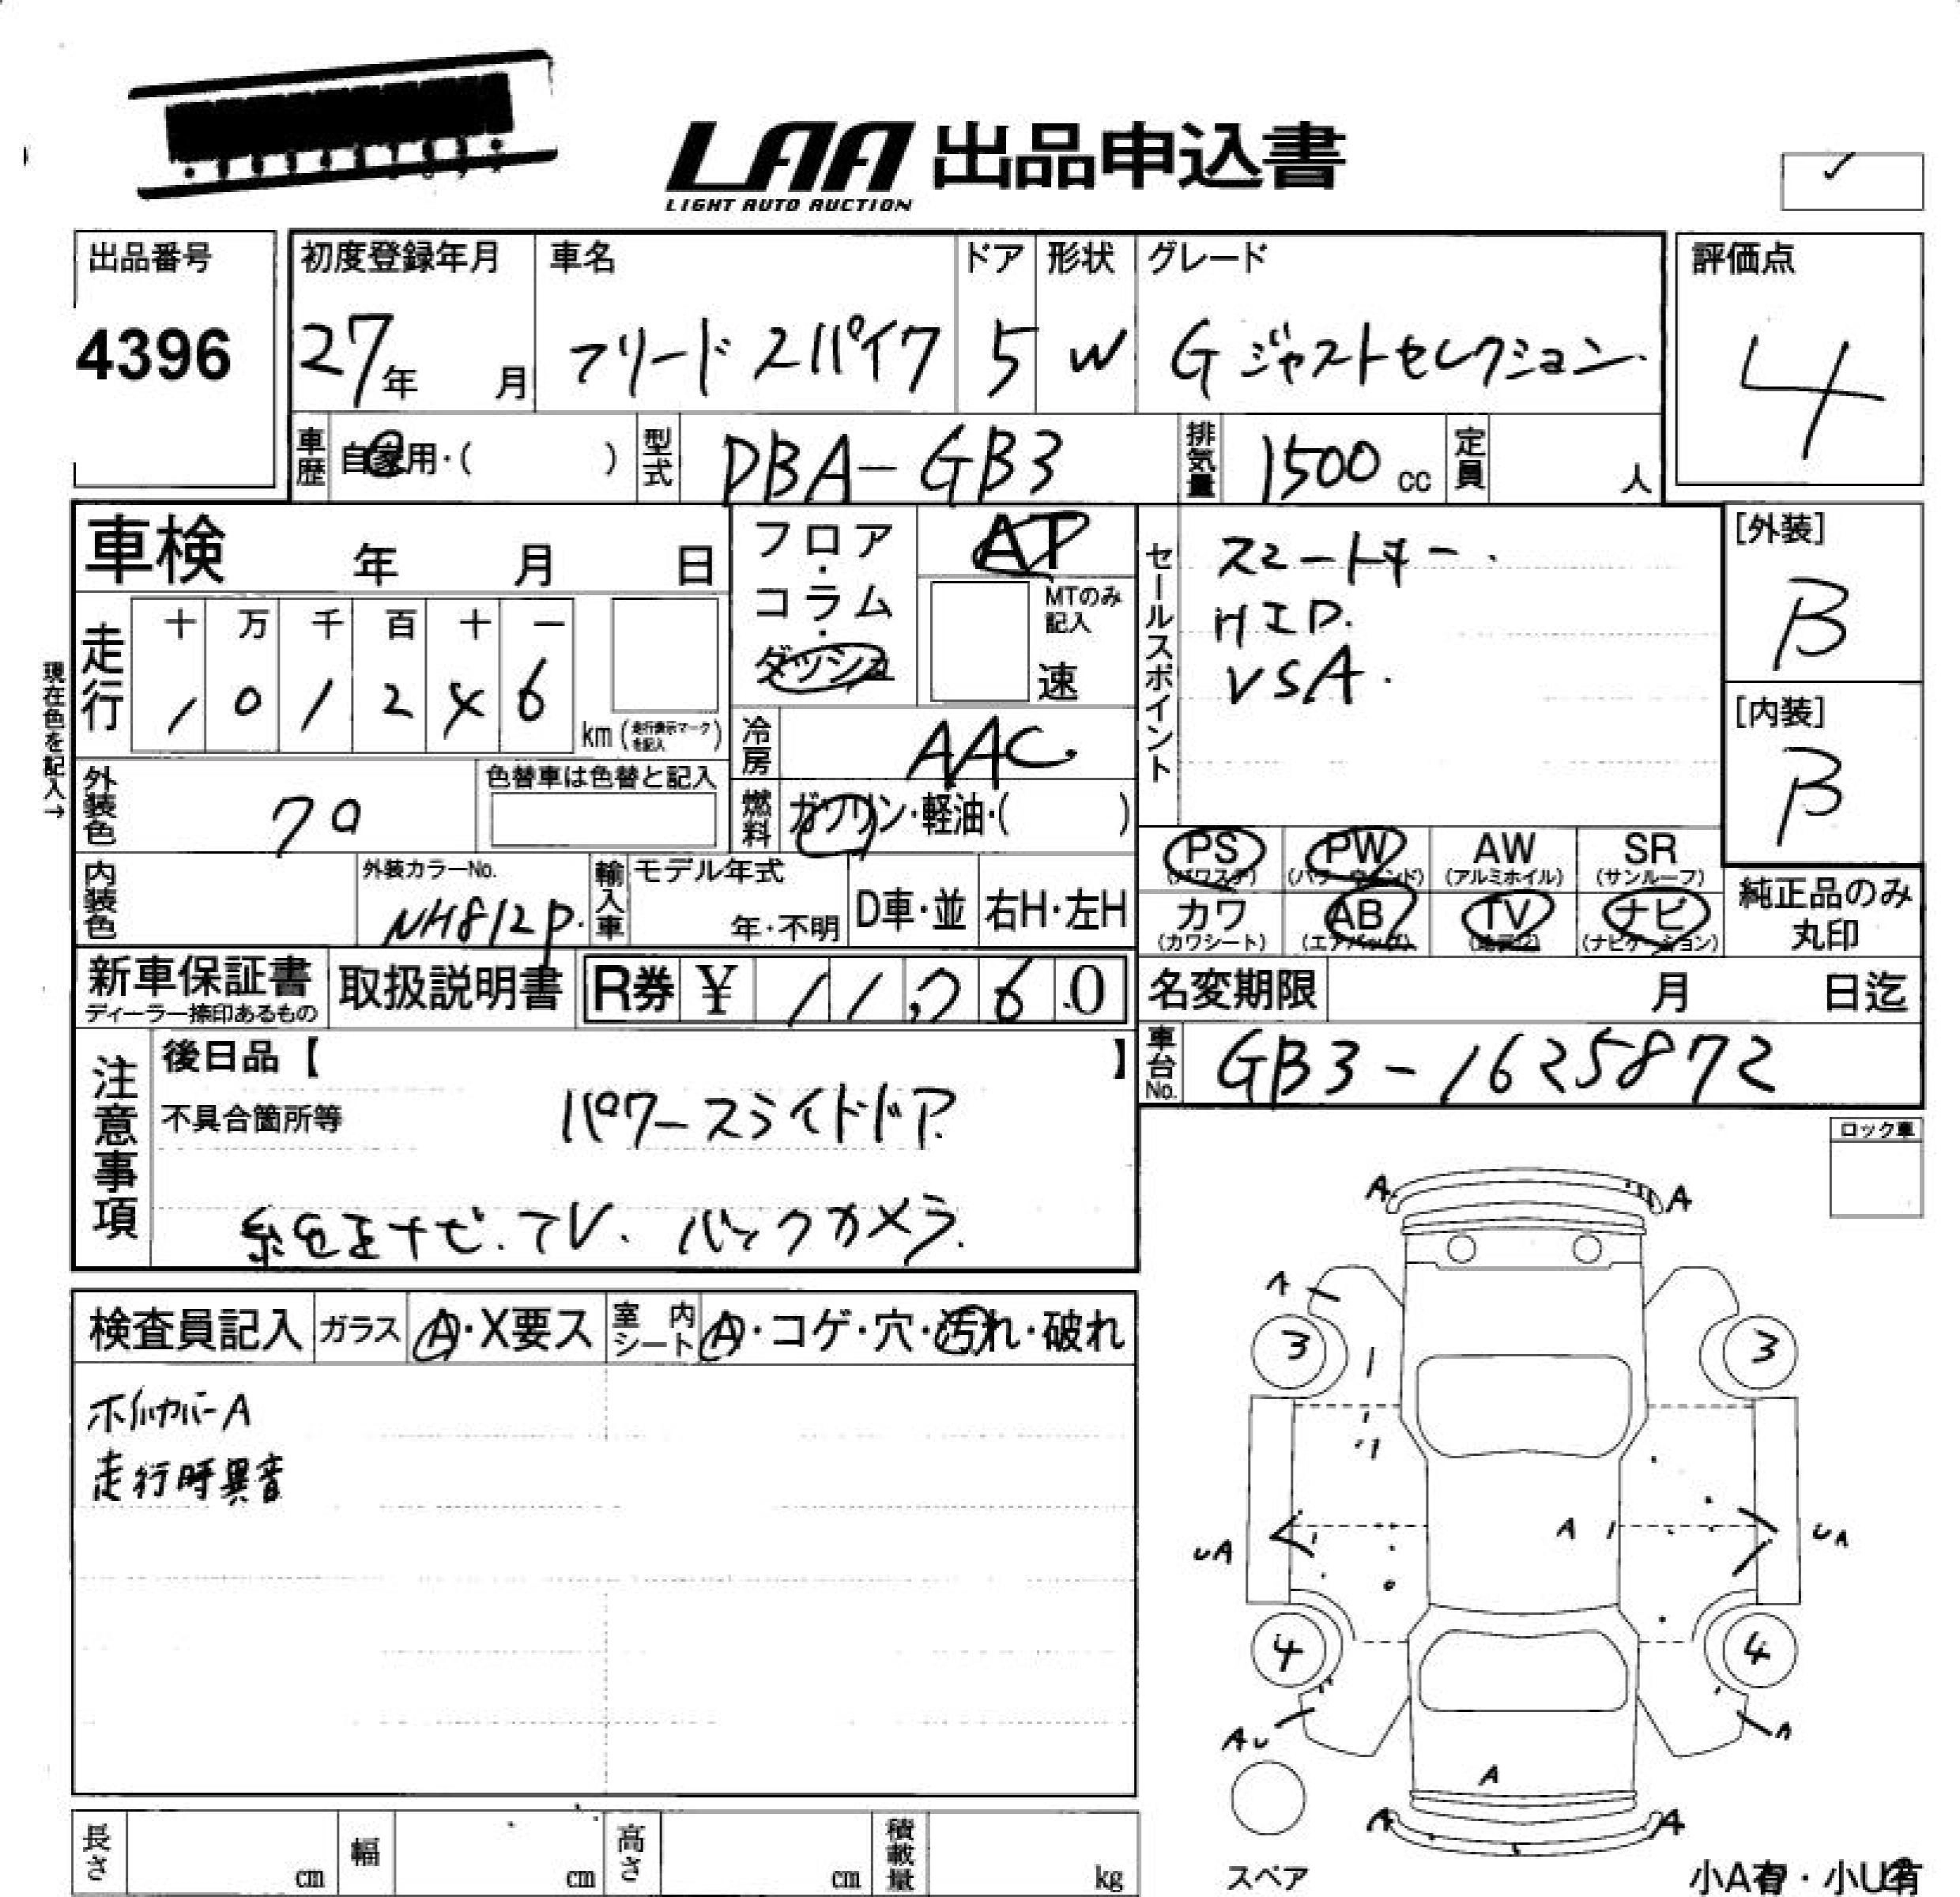 LAA 出品申込書
LIGHT AUTO AUCTION
出品番号
4396
初度登録年月
27年 月
車名
フリード スパイク
ドア
5
形状
W
グレード
G ジャストセレクション
評価点
4
車歴 自家用・( )
型式 DBA-GB3
排気量 1500 cc
定員 人
車検 年 月 日
フロア・コラム・ダッシュ
AT
MTのみ記入
速
セールスポイント
スマートキー.
HID.
VSA.
[外装]
B
[内装]
B
現在色を記入→
走行
十 万 千 百 十 一
1 0 1 2 4 6
km(走行表示マークを記入)
冷房 AAC
外装色
色替車は色替と記入
燃料 ガソリン・軽油・( )
内装色
外装カラーNo.
NH812P.
輸入車
モデル年式
年・不明
D車・並
右H・左H
PS (パワステ)
PW (パワーウィンド)
AW (アルミホイル)
SR (サンルーフ)
カワ (カワシート)
AB (エアバッグ)
TV
ナビ (ナビゲーション)
純正品のみ丸印
新車保証書
ディーラー捺印あるもの
取扱説明書
R券 ¥ 11,260
名変期限 月 日迄
車台No. GB3-1625872
注意事項
後日品【 】
不具合箇所等
パワースライドドア
純正ナビ. TV. バックカメラ.
ロック車
検査員記入
ガラス A・X要ス
室内シート A・コゲ・穴・汚れ・破れ
ホイルカバーA
走行時異音
A A
A
3 3
UA A UA
4 4
AU A
A
A A
スペア
小A有・小U有
長さ cm
幅 cm
高さ cm
積載量 kg